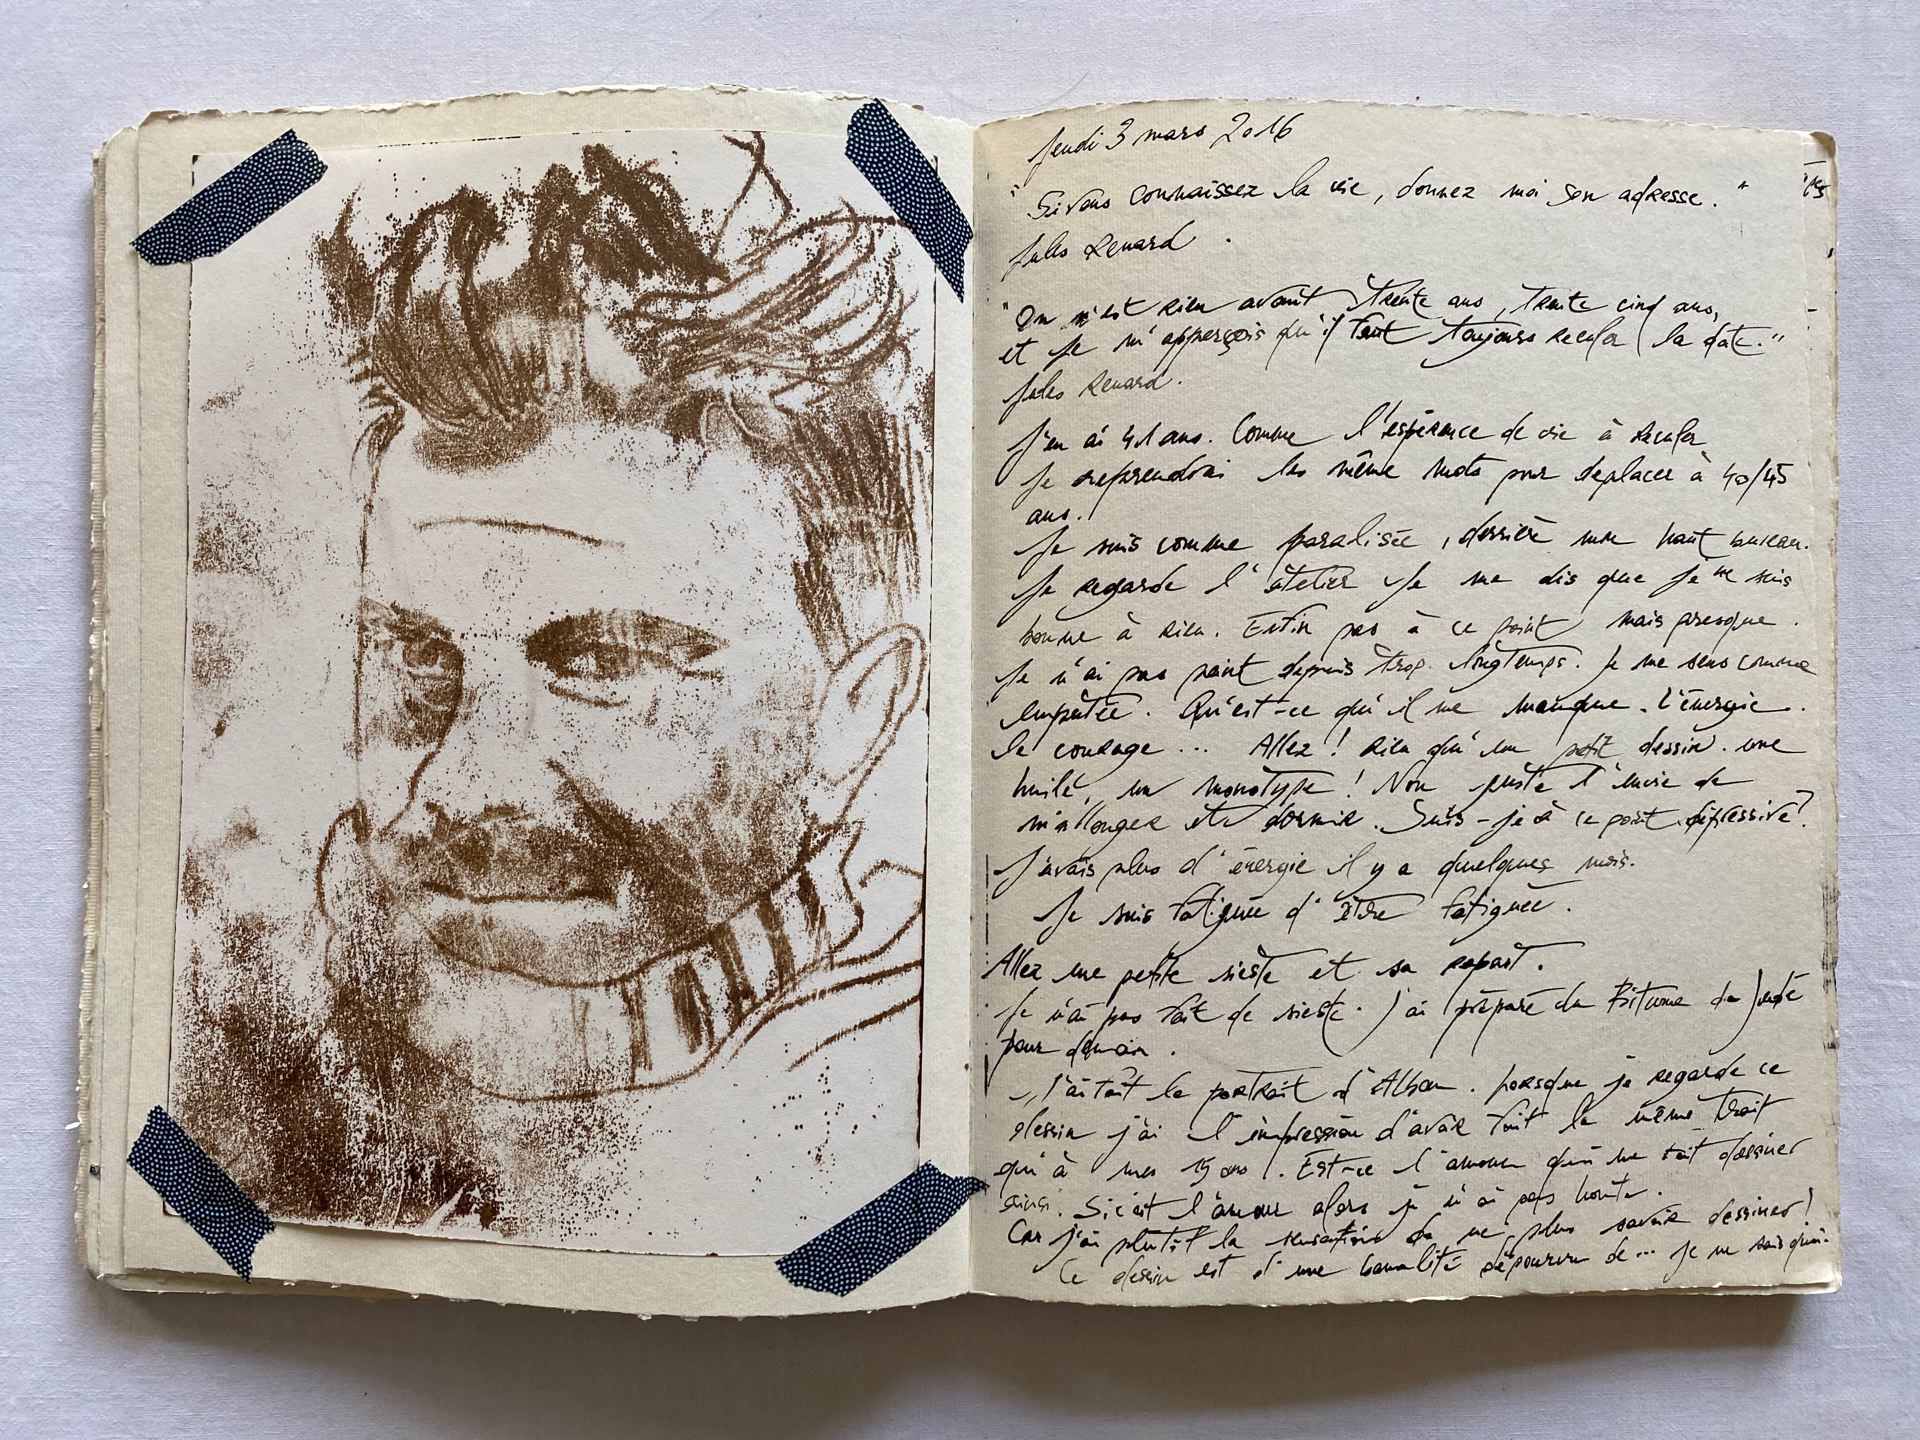 Jeudi 3 mars 2016
"Si vous connaissez la vie, donnez moi son adresse."
Jules Renard.
"On n'est rien avant trente ans, trente cinq ans,
et je m'apperçois qu'il faut toujours reculer la date."
Jules Renard.
J'en ai 41 ans. Comme l'espérence de vie à reculer
Je reprendrai les même mots pour deplacer à 40/45
ans.
Je suis comme paralisée, derrière mon haut bureau.
Je regarde l'atelier Je me dis que je ne suis
bonne à rien. Enfin pas à ce point mais presque.
Je n'ai pas peint depuis trop longtemps. Je me sens comme
emputée. Qu'est-ce qu'il me manque. L'énergie.
le courage ... Allez! Rien qu'un petit dessin. une
huile, un monotype! Non juste l'envie de
m'allonger et dormir. Suis-je à ce point dépressive?
J'avais plus d'énergie il y a quelques mois.
Je suis fatiguée d'être fatiguée.
Allez une petite sieste et sa repart.
Je n'ai pas fait de sieste. J'ai préparé du Bitume de Judé
pour demain.
J'ai fait le portrait d'Alban. Lorsque je regarde ce
dessin j'ai l'impression d'avoir fait le même trait
qu'à mes 15 ans. Est-ce l'amour qui me fait dessiner
ainsi. Si c'est l'amour alors je n'ai pas honte.
Car j'ai plutôt la sensation de ne plus savoir dessiner!
Ce dessin est d'une banalité dépourvu de... je ne sais quoi.